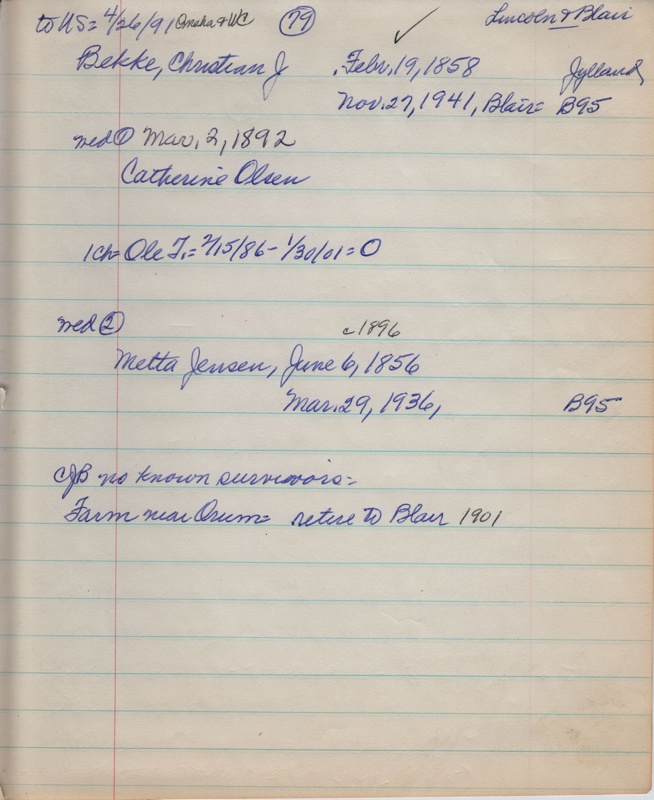 to US = 4/26/91 Omaha & WC 79 Lincoln & Blair
Bekke, Christian J Febr. 19, 1858 Jylland,
Nov. 27, 1941, Blair = B95
med ① Mar. 2, 1892
Catherine Olsen
1 ch = Ole T. = 2/15/86 - 1/30/01 = O
med ② c 1896
Metta Jensen, June 6, 1856
Mar. 29, 1936, B95
CJB no known survivors =
Farm near Orum = retire to Blair 1901